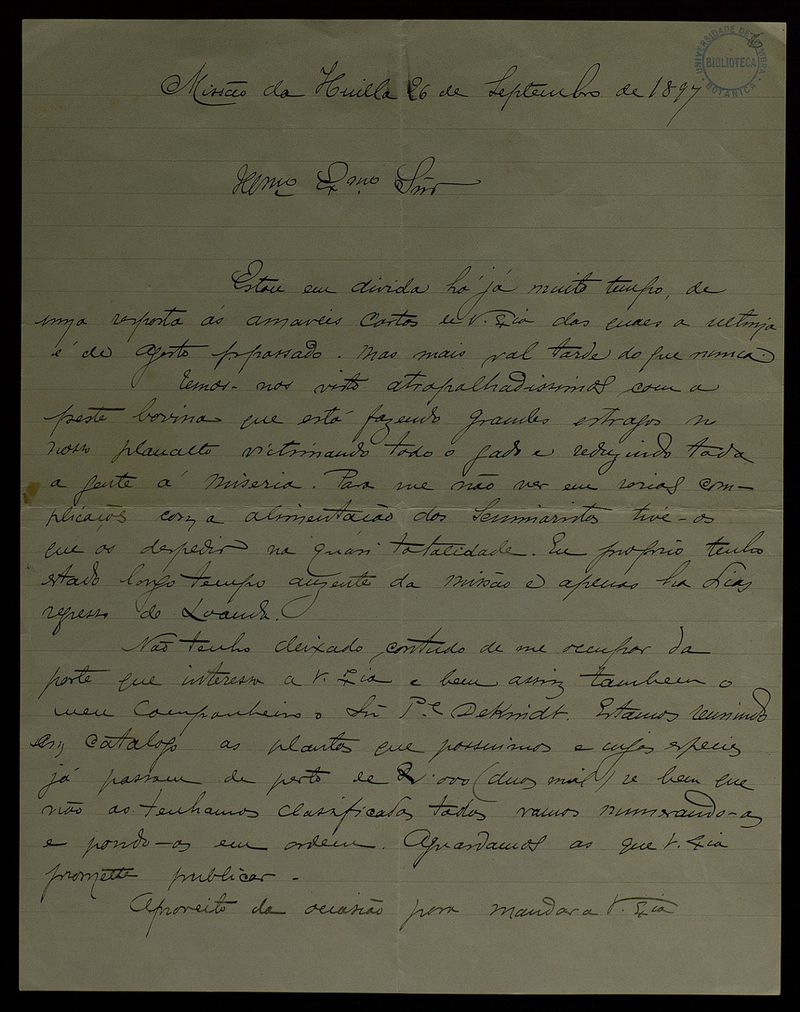 UNIVERSIDADE DE COIMBRA
BIBLIOTECA
BOTANICA
Missão da Huilla 26 de Septembro de 1897
Illmo Exmo Snr
Estou em divida há já muito tempo, de
uma resposta ás amaveis Cartas de V. Exia das quaes a ultima
é de Agosto ppassado. Mas mais val tarde do que nunca.
Temos-nos visto atrapalhadissimos com a
peste bovina que está fazendo grandes estragos n
nosso planalto victimando todo o gado e reduzindo toda
a gente á miseria. Para me não ver em serias com-
plicações com a alimentação dos Seminaristas tive-os
que os despedir na quasi totalidade. Eu proprio tenho
estado longo tempo auzente da missão e apenas ha dias
regresso de Loanda.
Não tenho deixado contudo de me occupar da
parte que interessa a V. Exia e bem assim tambem o
meu Companheiro o Snr Pe Dekindt. Estamos reunindo
em catalogo as plantas que possuimos e cujas especies
já passam de perto de 2.000 (duas mil) se bem que
não as tenhamos classificadas todas vamos numerando-as
e pondo-as em ordem. Aguardamos as que V. Exia
promette publicar.
Aproveito da occasião para mandar a V. Exia